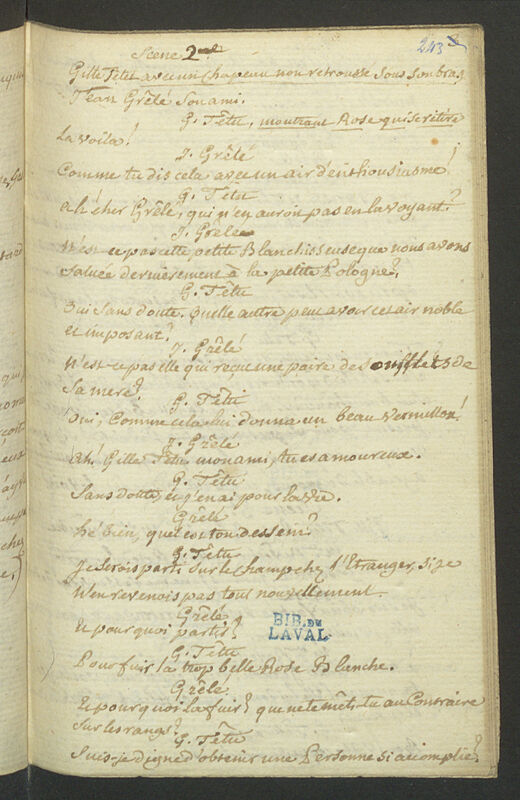 243
Scene 2
Gille Têtu avec un chapeau non retroussé sous son bras,
Jean Grêlé son ami.
G. Têtu, montrant Rose qui se retire
La voila!
J. Grêlé
Comme tu dis cela avec un air d'enthousiasme!
G. Têtu
ah! cher Grêlé, qui n'en auroit pas en la voyant?
J. Grêlé
N'est-ce pas cette petite Blanchisseuse que nous avons
saluée dernièrement à la petite Pologne?
G. Têtu
Oui sans doute. Quelle autre peut avoir cet air noble
et imposant?
J. Grêlé
N'est-ce pas elle qui reçut une paire de soufflets de
sa mere?
G. Têtu
Oui, Comme cela lui donna un beau vermillon!
J. Grêlé
Ah! Gille Têtu mon ami, tu es amoureux.
G. Têtu
Sans doute, et j'en ai pour la vie.
Grêlé
hé bien, quel est ton dessein?
G. Têtu
Je serois parti sur le champ chez l'Etranger, si je
n'en revenois pas tout nouvellement.
Grêlé
Et pourquoi partir?
G. Têtu
Pour fuir la trop belle Rose Blanche.
Grêlé
Et pourquoi la fuir? que ne te mêts-tu au Contraire
sur les rangs?
G. Têtu
Suis-je digne d'obtenir une Personne si acomplie?
BIB. DE
LAVAL